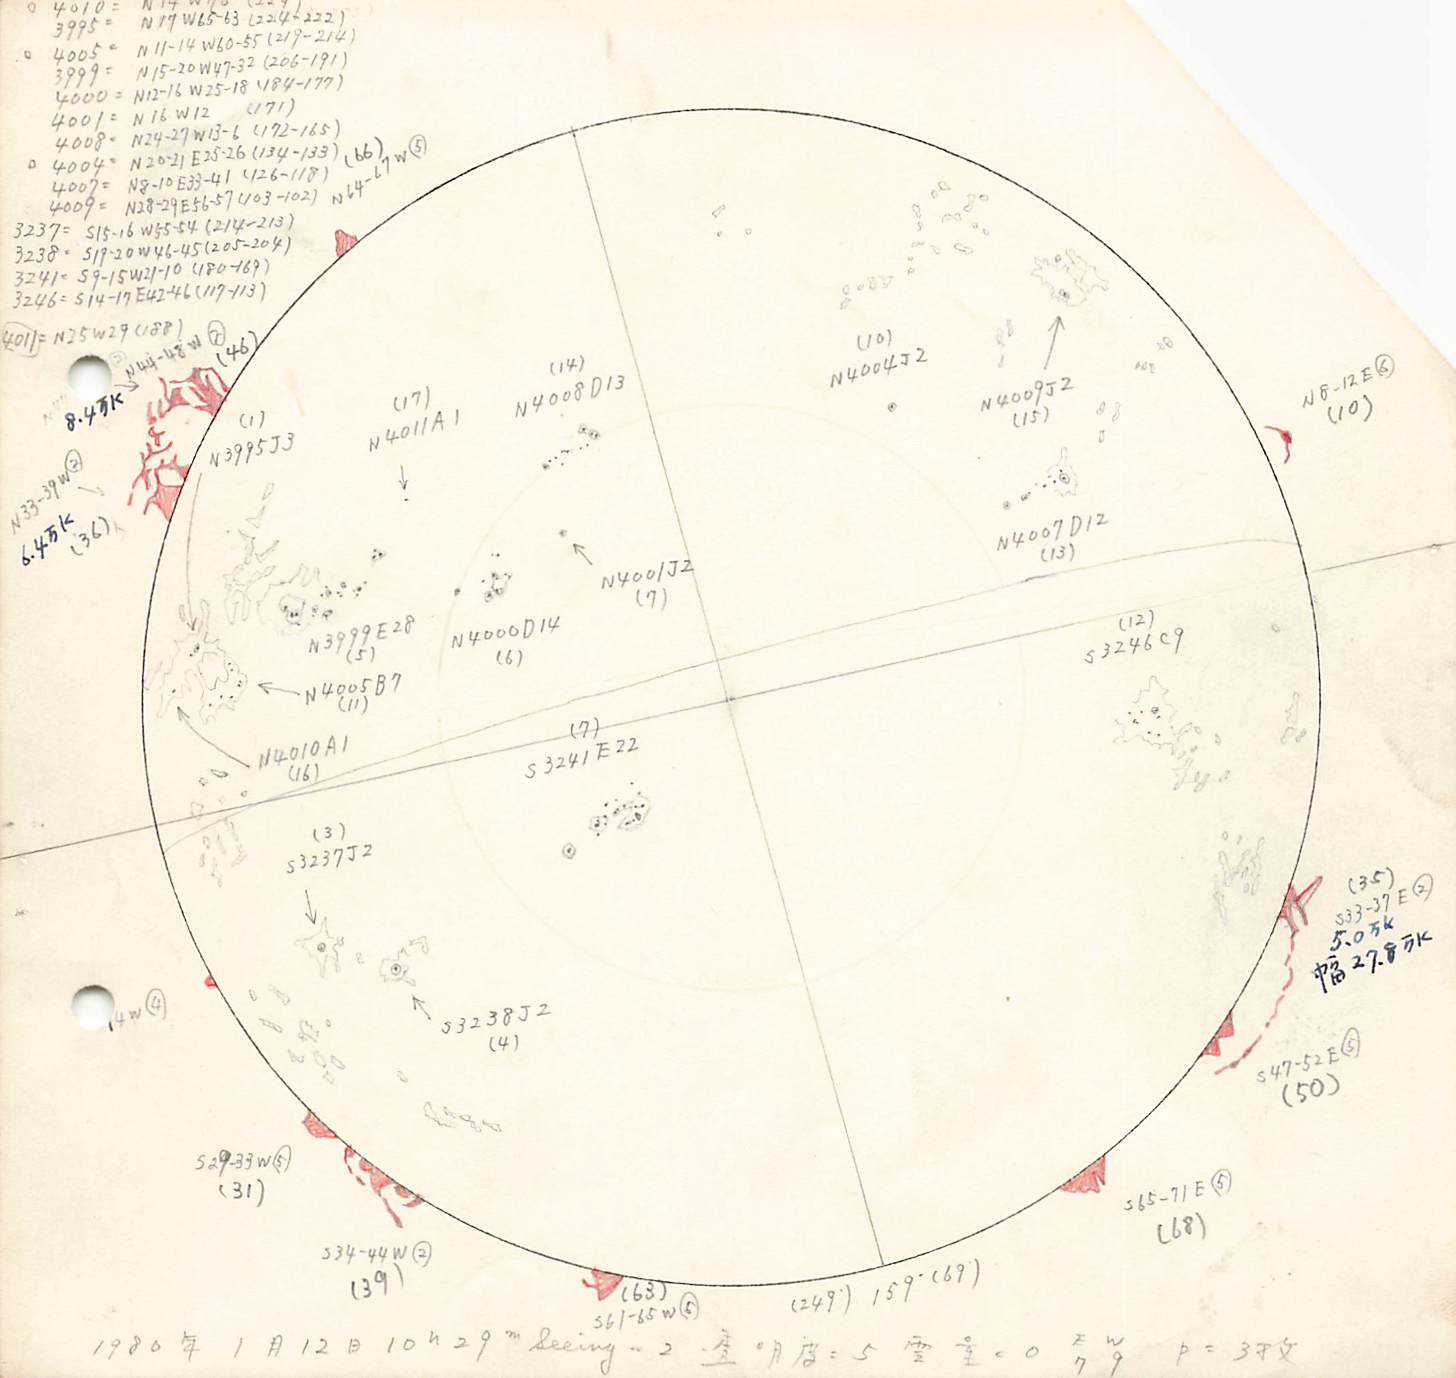 4010 = N14 W70 (229)
3995 = N17 W65-63 (224-222)
4005 = N11-14 W60-55 (219-214)
3999 = N15-20 W47-32 (206-191)
4000 = N12-16 W25-18 (184-177)
4001 = N16 W12 (171)
4008 = N24-27 W13-6 (172-165)
4004 = N20-21 E25-26 (134-133)
4007 = N8-10 E33-41 (126-118)
4009 = N28-29 E56-57 (103-102)
3237 = S15-16 W55-54 (214-213)
3238 = S19-20 W46-45 (205-204)
3241 = S9-15 W21-10 (180-169)
3246 = S14-17 E42-46 (117-113)
4011 = N25 W29 (188)
(66)
N64-67 W ⑤
N44-48 W ②
(46)
8.4万K
(1)
N3995J3
(17)
N4011A1
(14)
N4008D13
(10)
N4004J2
N4009J2
(15)
N8-12E⑥
(10)
N33-39W②
6.4万K
(36)
N4007D12
(13)
N4001J2
(7)
N3999E28
(5)
N4000D14
(6)
(12)
S3246C9
N4005B7
(11)
N4010A1
(16)
(7)
S3241E22
(3)
S3237J2
(35)
S33-37E②
5.0万K
幅27.8万K
4W④
S3238J2
(4)
S47-52E⑤
(50)
S29-33W⑤
(31)
S65-71E⑤
(68)
S34-44W②
(39)
(63)
S61-65W⑤
(249°) 159° (69°)
1980年 1月12日 10h 29m Seeing = 2 透明度 = 5 雲量 = 0 E7 W9 P = 3枚